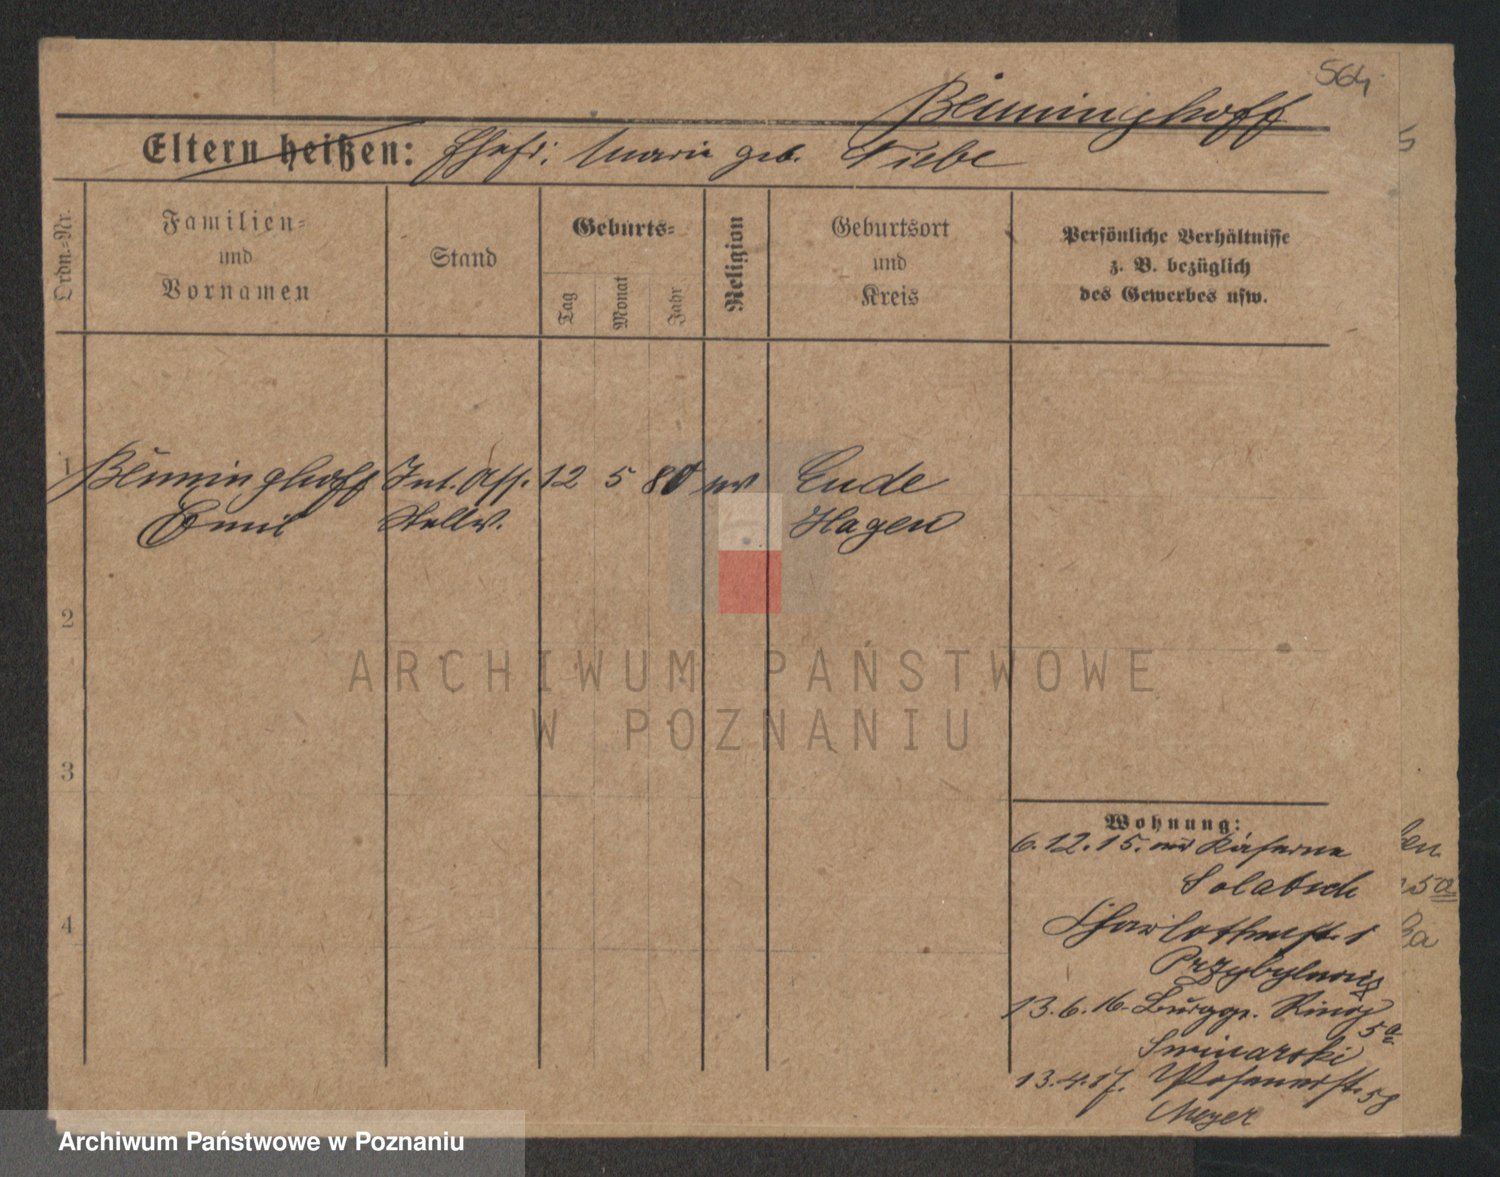 564
Benninghoff
Eltern heißen: Ehefr: Marie geb. Fiebe
Ordn.-Nr.
Familien-
und
Vornamen
Stand
Geburts-
Tag
Monat
Jahr
Religion
Geburtsort
und
Kreis
Persönliche Verhältnisse
z. B. bezüglich
des Gewerbes usw.
1 Benninghoff Int. Ass. 12 5 80 ev Ende
Emil Stellv. Hagen
2
ARCHIWUM PAŃSTWOWE
W POZNANIU
3
Wohnung:
6.12.15. Kaserne
4
Charlottenst. 1
13.6.16. Burggr. Ring
5a
Swinarski
13.4.17. Posenerst. 58
Meyer
5
en
5a
3a
Archiwum Państwowe w Poznaniu